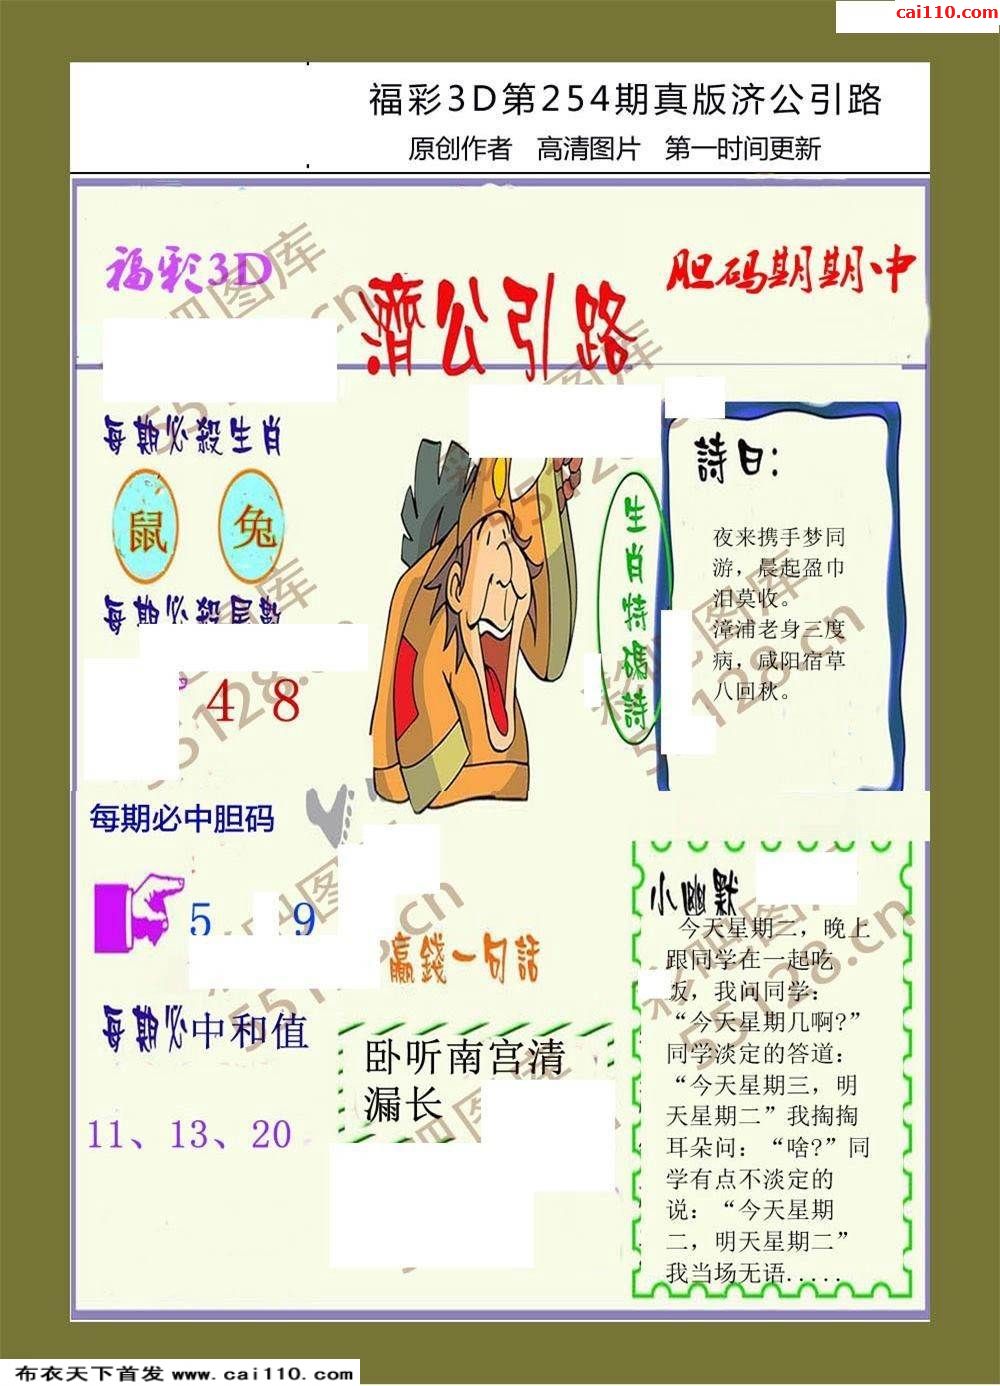 cai110.com
福彩3D第254期真版济公引路
原创作者 高清图片 第一时间更新
福彩3D
胆码期期中
濟公引路
每期必殺生肖
鼠 兔
每期必殺尾數
4 8
生肖特碼詩
詩曰:
夜来携手梦同
游，晨起盈巾
泪莫收。
漳浦老身三度
病，咸阳宿草
八回秋。
每期必中胆码
5 9
每期必中和值
11、13、20
赢錢一句話
卧听南宫清
漏长
小幽默
今天星期二，晚上
跟同学在一起吃
饭，我问同学：
“今天星期几啊?”
同学淡定的答道：
“今天星期三，明
天星期二”我掏掏
耳朵问：“啥?”同
学有点不淡定的
说：“今天星期
二，明天星期二”
我当场无语.....
彩吧图库
55128.cn
布衣天下首发 www.cai110.com